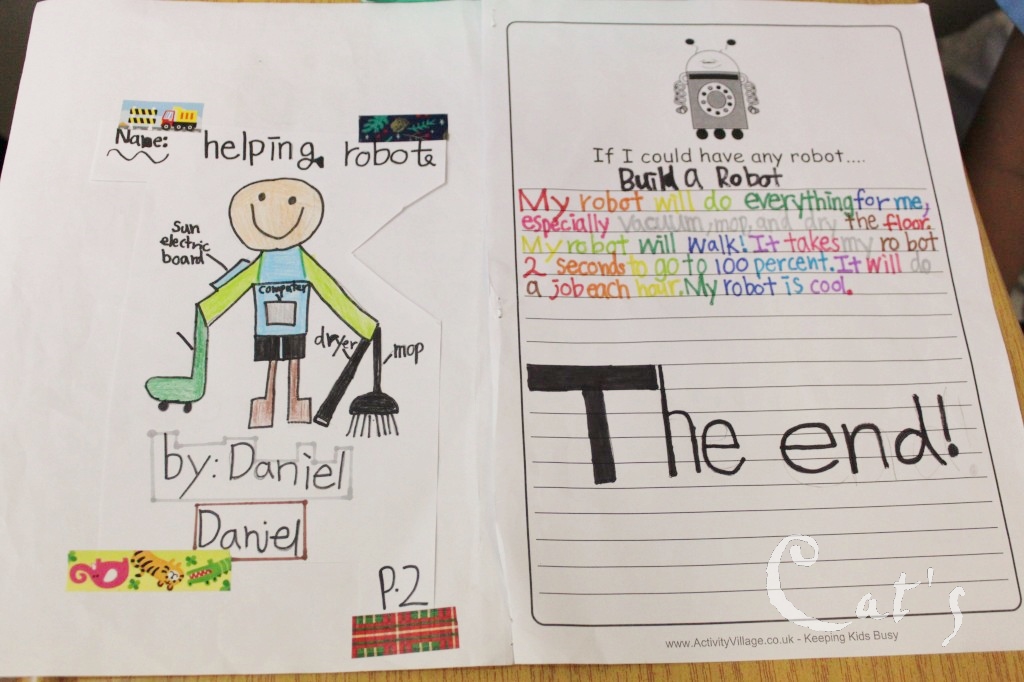 Name:
helping robote
sun
electric
board
computer
dryer
mop
by: Daniel
Daniel
P.2
If I could have any robot....
Build a Robot
My robot will do everything for me,
especially vacuum, mop, and dry the floor.
My robot will walk! It takes my robot
2 seconds to go to 100 percent. It will do
a job each hour. My robot is cool.
The end!
www.ActivityVillage.co.uk - Keeping Kids Busy
Cat's